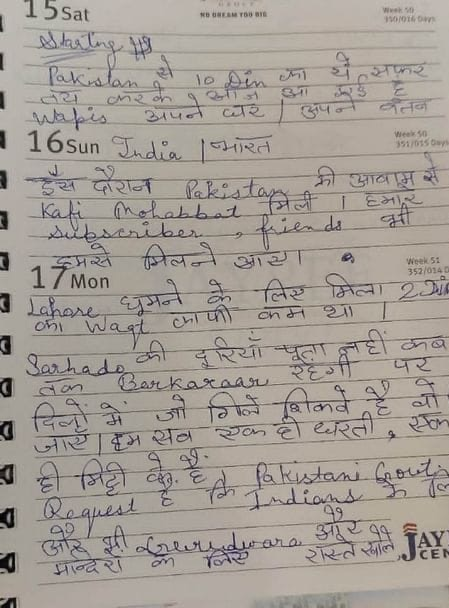 15 Sat
NO DREAM TOO BIG
Week 50
350/016 Days
Starting
Pakistan से 10 Din का ये सफर
तय करके, आज आ गई है
Wapis अपने घर | अपने वतन
16 Sun India | भारत
Week 50
351/015 Days
इस दौरान Pakistan की आवाम से
Kafi Mohabbat मिली | हमारे
Subscriber, friends भी
हमसे मिलने आए |
17 Mon
Week 51
352/014 D
Lahore घूमने के लिए मिला 2 Din
का Waqt काफी कम था |
Sarhado की दूरियाँ पता नहीं कब
तक Barkaraar रहेगी पर
दिलों में जो गिले शिकवे है वो
जाए | हम सब एक ही धरती, एक
ही मिट्टी के है | Pakistani
Request है कि Indians के
और भी Gurudwara और
मन्दिरों के लिए रास्ते खोले
JAY
CEN